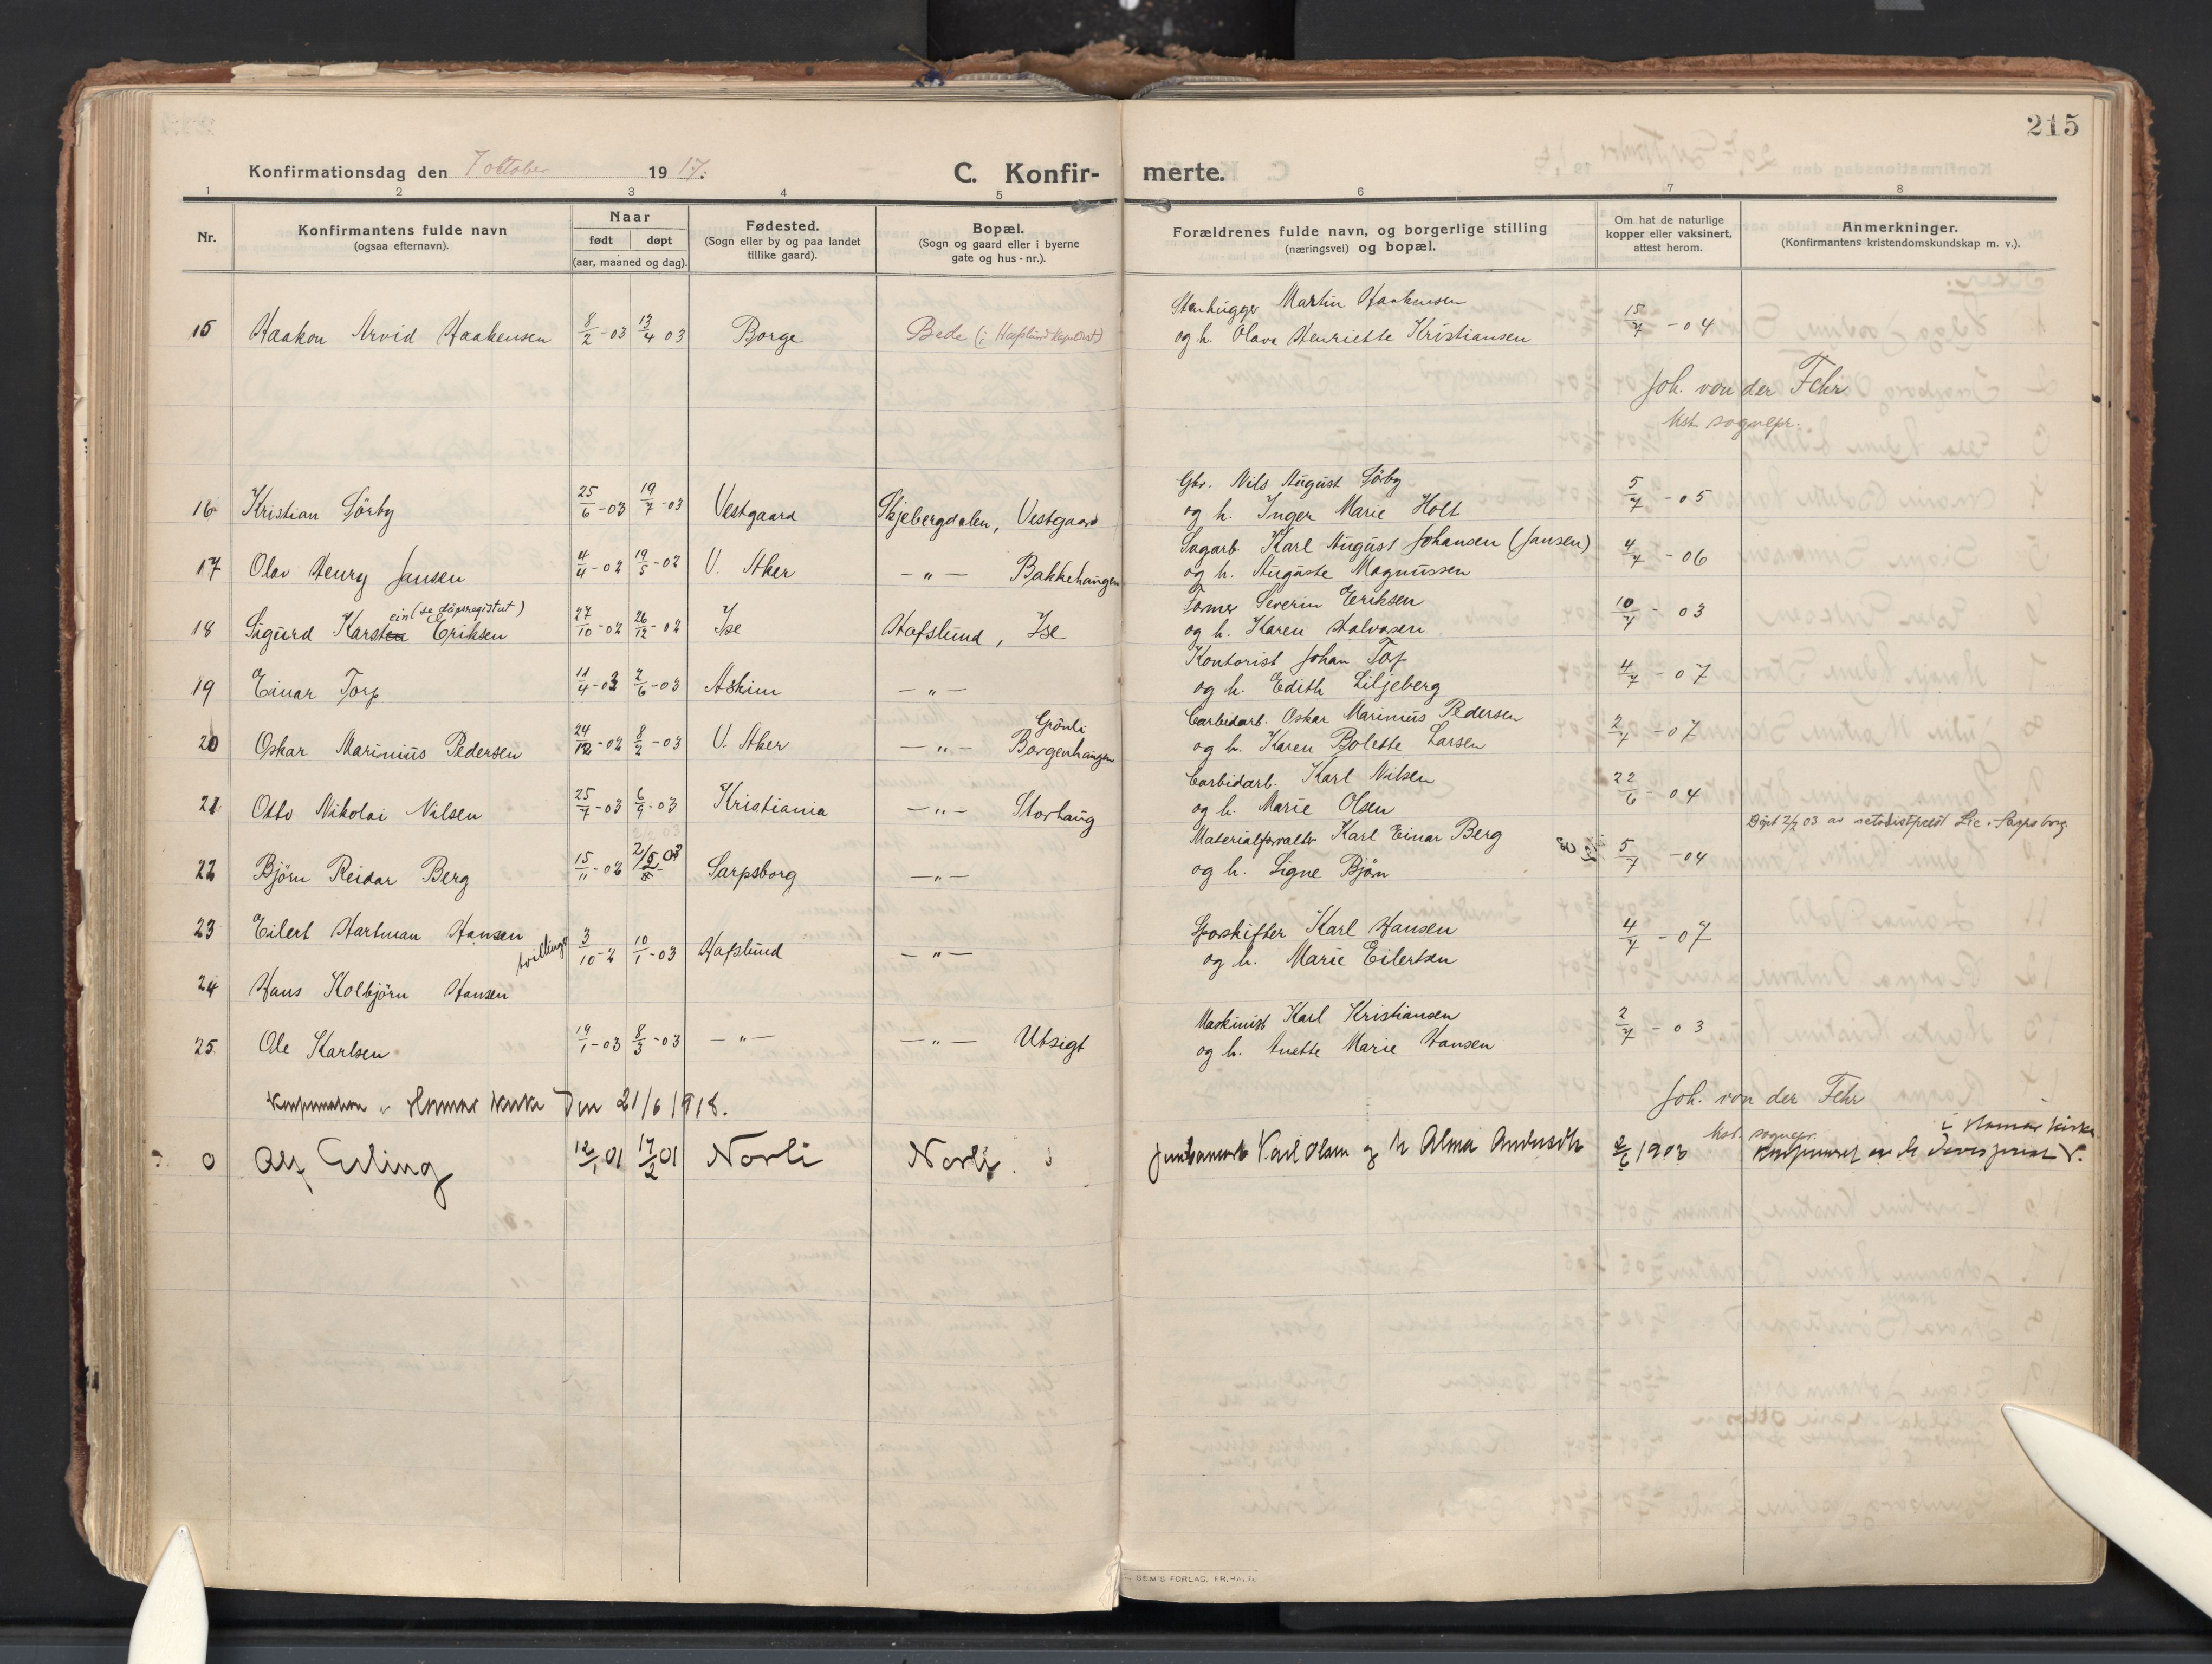 215
Konfirmationsdag den 7 october 1917. C. Konfirmerte.
1 2 3 4 5 6 7 8
Nr. Konfirmantens fulde navn (ogsaa efternavn). Naar født døpt (aar, maaned og dag). Fødested. (Sogn eller by og paa landet tillike gaard). Bopæl. (Sogn og gaard eller i byerne gate og hus-nr.). Forældrenes fulde navn, og borgerlige stilling (næringsvei) og bopæl. Om hat de naturlige kopper eller vaksinert, attest herom. Anmerkninger. (Konfirmantens kristendomskundskap m. v.).
Stenhugger Martin Haakensen
15 Haakon Arvid Haakensen 8/2-03 13/4 03 Borge Bede (i Hafslund kapeldist) og h. Olava Henriette Kristiansen 15/7-04
Joh. von der Fehr
kst. sognepr.
Gbr. Nils August Sörby
16 Kristian Sörby 25/6-03 19/7-03 Vestgaard Skjebergdalen, Vestgaard og h. Inger Marie Holt 5/7-05
Sagarb. Karl August Johansen (Jansen)
17 Olav Henry Jansen 4/4-02 19/5-02 U. Aker —"— Bakkehaugen og h. Auguste Magnussen 4/7-06
ein (se döpsregistret)
Former Severin Eriksen
18 Sigurd Karsten Eriksen 27/10-02 26/12-02 Ise Hafslund, Ise og h. Karen Halvorsen 10/7-03
Kontorist Johan Torp
19 Einar Torp 11/4-03 2/6-03 Askim —"— og h. Edith Liljeberg 4/7-07
Grönli
Carbidarb. Oskar Marinius Pedersen
20 Oskar Marinius Pedersen 24/12-02 8/2-03 U. Aker —"— Borgenhaugen og h. Karen Bolette Larsen 2/7-07
Carbidarb. Karl Nilsen
21 Otto Nikolai Nilsen 25/7-03 6/9-03 Kristiania —"— Storhaug og h. Marie Olsen 22/6-04
Döpt 2/2 03 av metodistprest Lie i Sarpsborg
Materialforvalter Karl Einar Berg
22 Björn Reidar Berg 15/11-02 2/5 03 Sarpsborg —"— og h. Signe Björn 5/7-04
23 Eilert Hartman Hansen Sporskifter Karl Hansen 4/7-07
tvillinger 3/10-2 10/1-03 Hafslund —"— og h. Marie Eilertsen
24 Hans Kolbjörn Hansen
Maskinist Karl Kristiansen
25 Ole Karlsen 19/1-03 8/3-03 —"— —"— Utsigt og h. Anette Marie Hansen 2/7-03
Konfirmation i Hamar kirke den 21/6 1918.
Joh. von der Fehr
kst. sognepr.
i Hamar kirke
0 Alf Erling 12/1 01 17/2 01 Norli Norli Karl Olsen og h Alma 2/6 1903 konfirmeret av
SEM'S FORLAG, FR.HALD